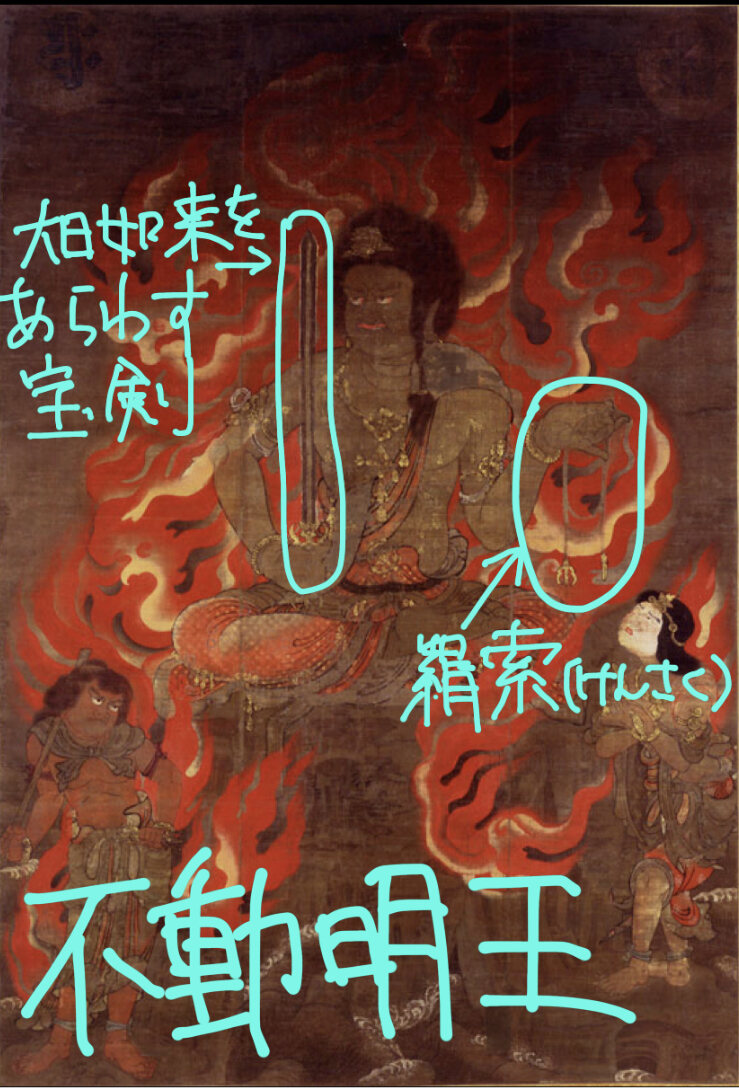 大日如来を
あらわす
宝剣
羂索(けんさく)
不動明王